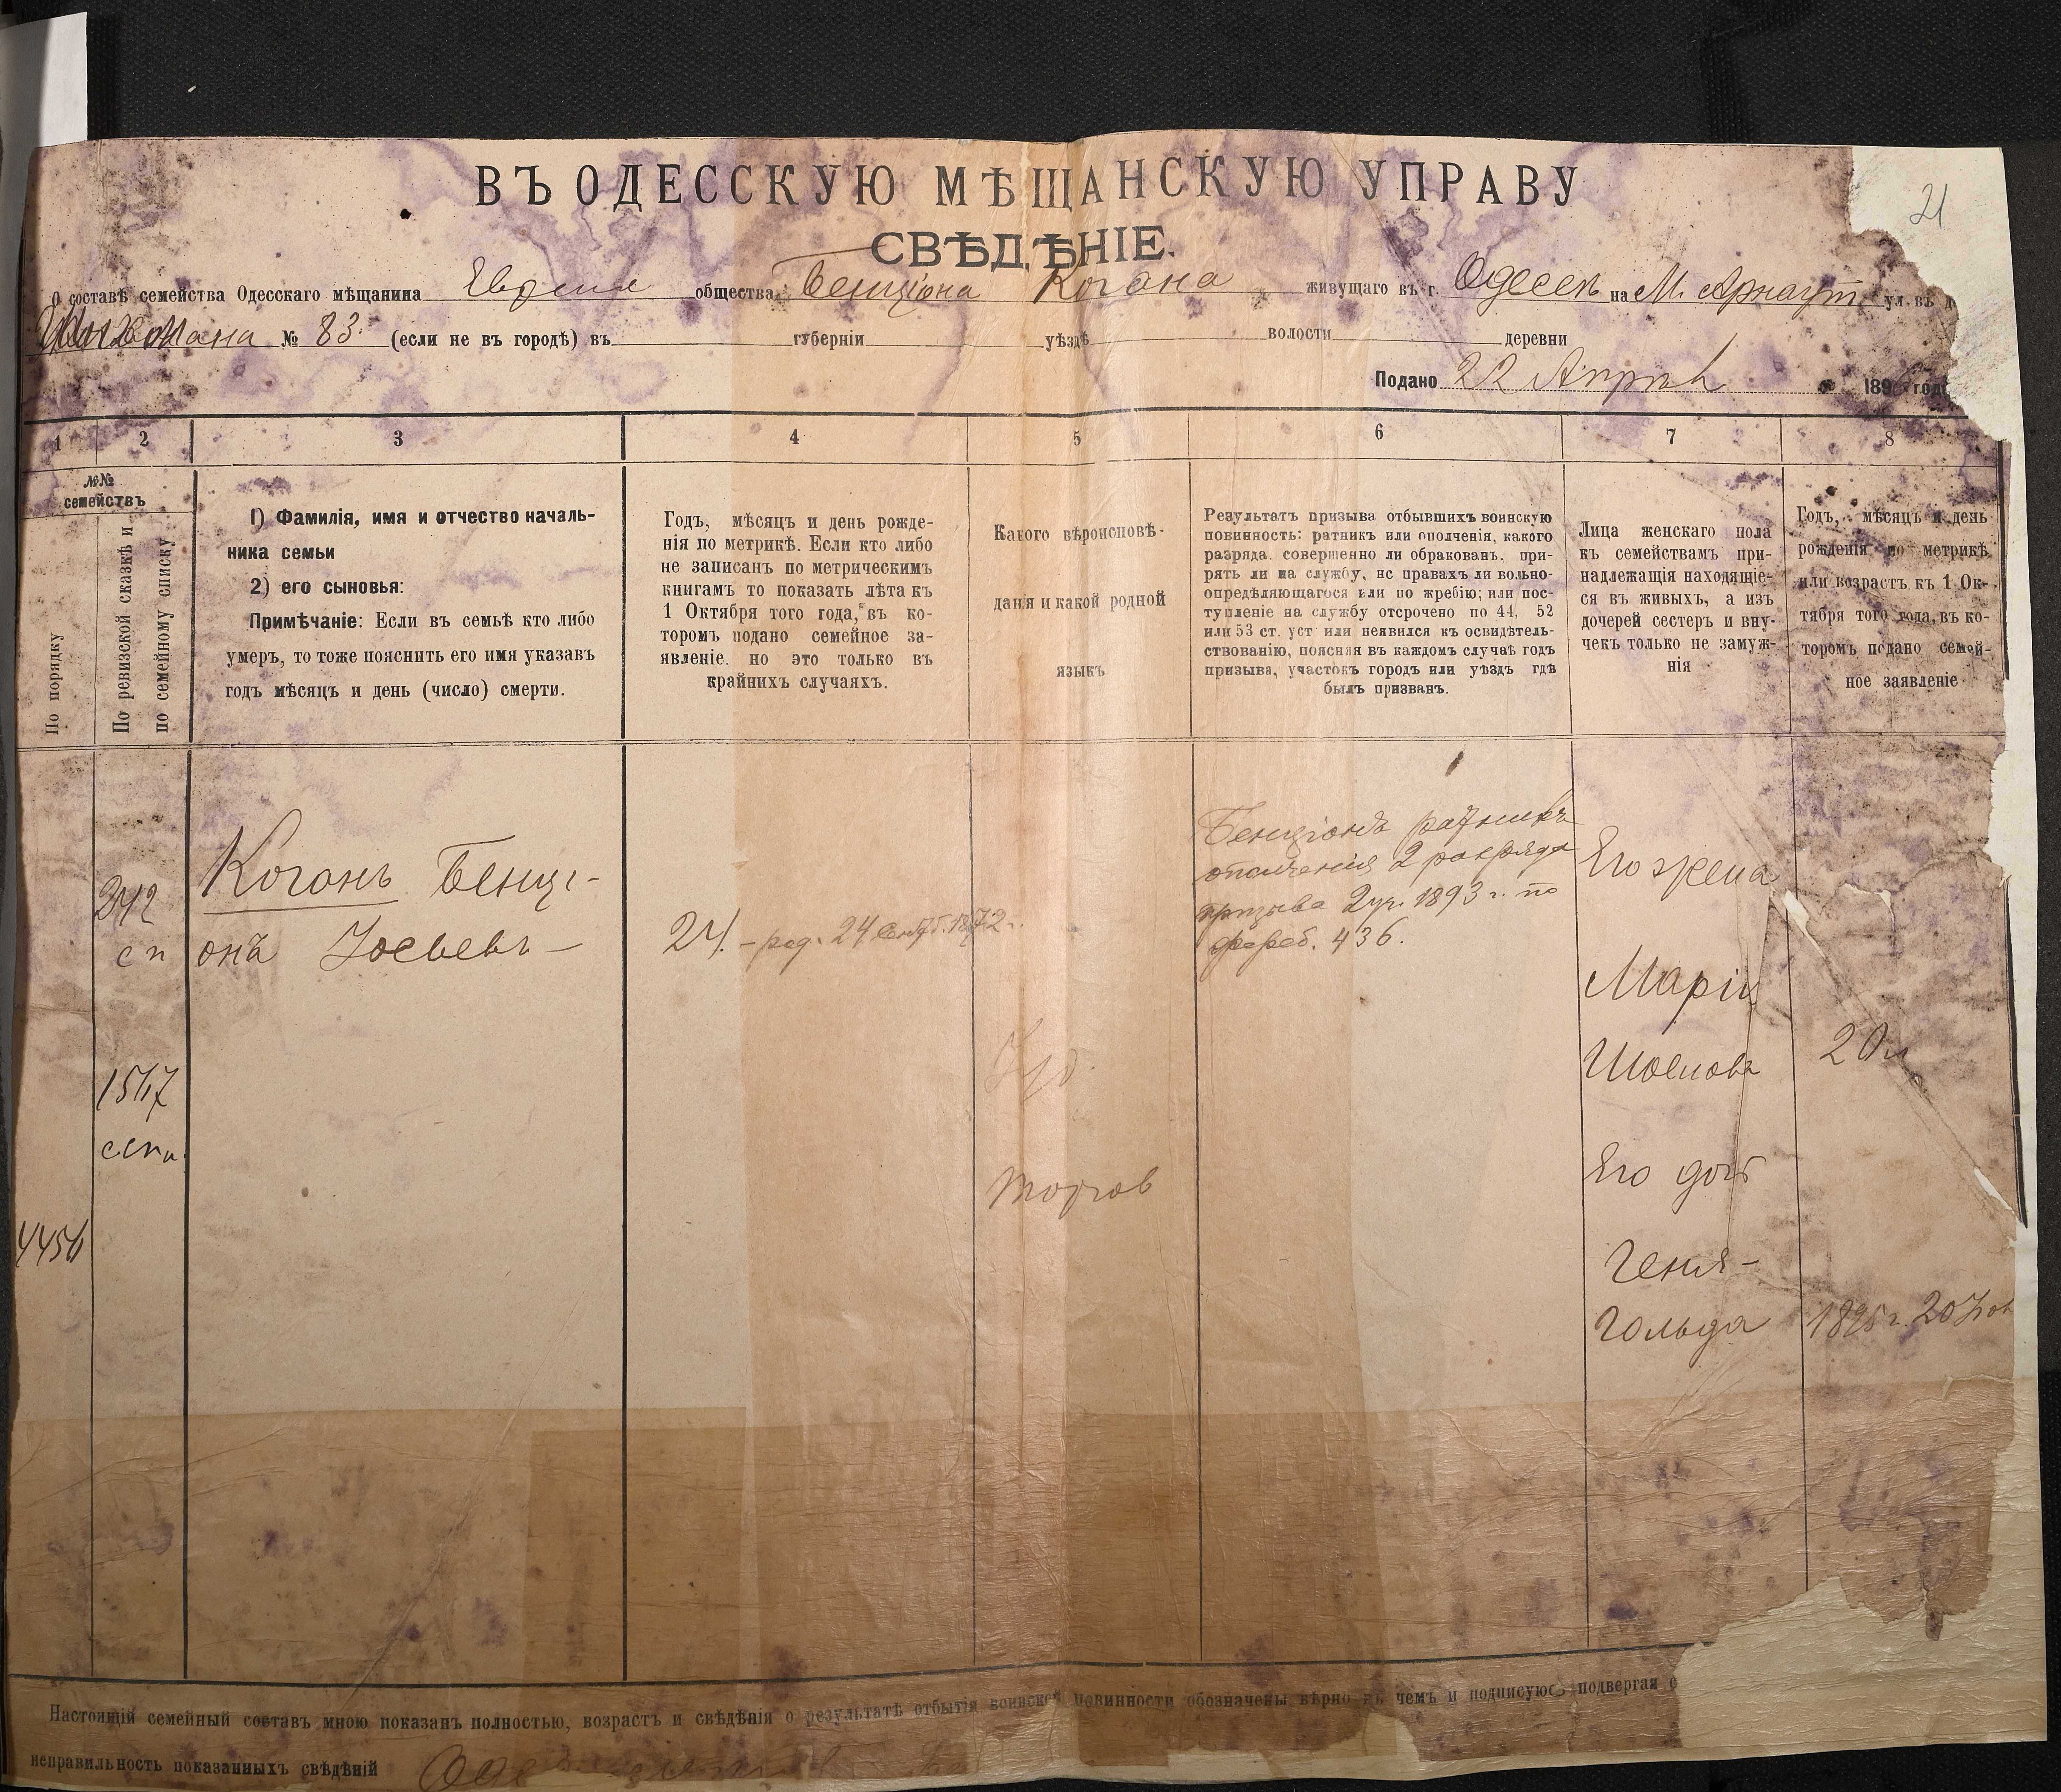 21
ВЪ ОДЕССКУЮ МѢЩАНСКУЮ УПРАВУ
СВѢДѢНІЕ.
О составѣ семейства Одесскаго мѣщанина общества Бенціона Когана живущаго въ г. Одессѣ на М. Арнаут. ул. въ д
№ 83 (если не въ городѣ) въ губерніи уѣздѣ волости деревни
Подано 22 Апрѣл 189 год
1 2 3 4 5 6 7 8
№№
семействъ
По порядку
По ревизской сказкѣ и
по семейному списку
1) Фамилія, имя и отчество началь-
ника семьи
2) его сыновья:
Примѣчаніе: Если въ семьѣ кто либо
умеръ, то тоже пояснить его имя указавъ
годъ мѣсяцъ и день (число) смерти.
Годъ, мѣсяцъ и день рожде-
нія по метрикѣ. Если кто либо
не записанъ по метрическимъ
книгамъ то показать лѣта къ
1 Октября того года, въ ко-
торомъ подано семейное за-
явленіе. но это только въ
крайнихъ случаяхъ.
Какого вѣроисповѣ-
данія и какой родной
языкъ
Результатъ призыва отбывшихъ воинскую
повинность: ратникъ или ополченія, какого
разряда. совершенно ли обракованъ. при-
рять ли на службу, нс правахъ ли вольно-
опредѣляющагося или по жребію; или пос-
тупленіе на службу отсрочено по 44, 52
или 53 ст. уст или неявился къ освидѣтель-
ствованію, поясняя въ каждомъ случаѣ годъ
призыва, участокъ городъ или уѣздъ гдѣ
былъ призванъ.
Лица женскаго пола
къ семействамъ при-
надлежащія находящіе-
ся въ живыхъ, а изъ
дочерей сестеръ и вну-
чекъ только не замуж-
нія
Годъ, мѣсяцъ и день
рожденія по метрикѣ
или возрастъ къ 1 Ок-
тября того года, въ ко-
торомъ подано семей-
ное заявленіе
242
сп
1517
4456
Коганъ Бенці-
онъ Іосьевъ —
24. — род. 24 Сентб. 1872 г.
Бенціонъ ратникъ
ополченія 2 разряда
призыва 2 уч. 1893 г. по
жереб. 436.
Его жена
Марія
Шоелова
20 л
Его дочь
Геня-
Гольда
1895 г. 20
Настоящій семейный составъ мною показанъ полностью, возрастъ и свѣдѣнія о результатѣ отбытія воинской повинности обозначены вѣрно въ чемъ и подписуюсь подвергая с
неправильность показанныхъ свѣдѣній